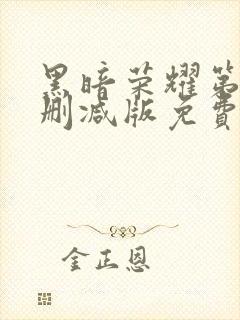 黑暗荣耀第
删减版免費
金正恩